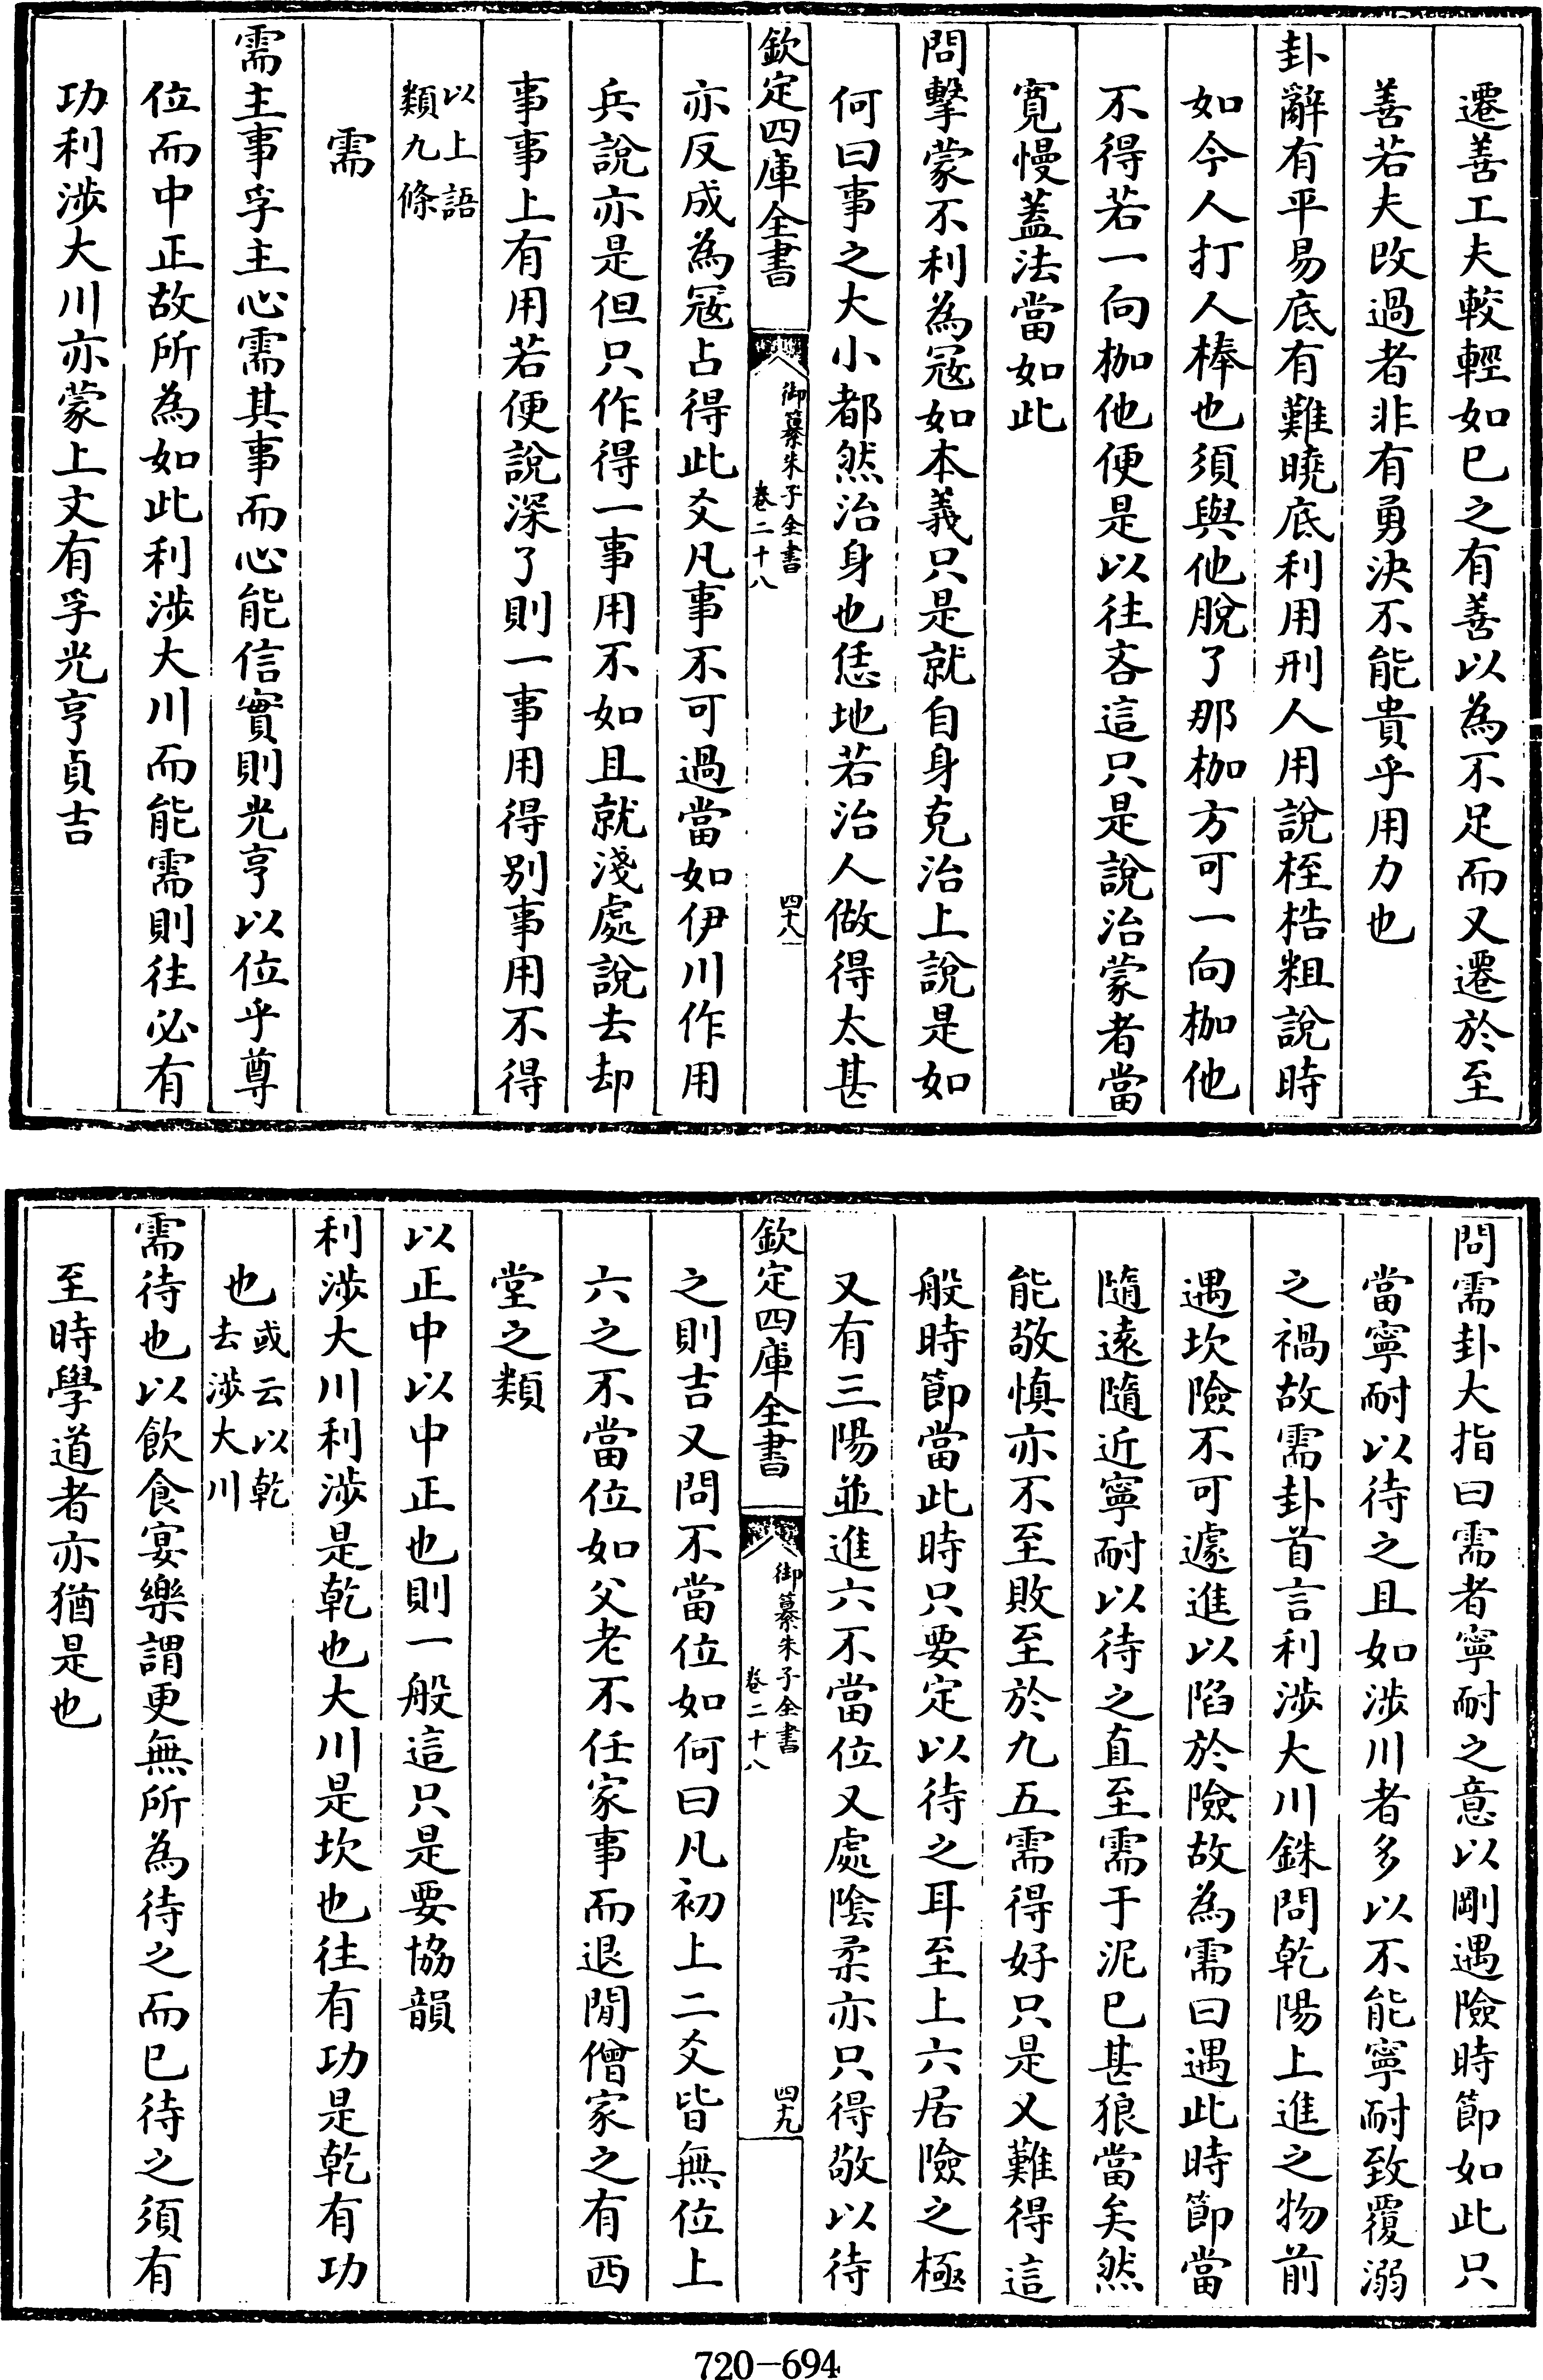 遷善工夫較輕如已之有善以為不足而又遷於至
善若夫改過者非有勇決不能貴乎用力也
卦辭有平易底有難曉底利用刑人用說桎梏粗說時
如今人打人棒也須與他脫了那枷方可一向枷他
不得若一向枷他便是以往吝這只是說治蒙者當
寬慢蓋法當如此
問擊蒙不利為冦如本義只是就自身克治上說是如
何曰事之大小都然治身也恁地若治人做得太甚
欽定四庫全書
御纂朱子全書
卷二十八
四十八
亦反成為冦占得此爻凡事不可過當如伊川作用
兵說亦是但只作得一事用不如且就淺處說去却
事事上有用若便說深了則一事用得别事用不得
以上語
類九條
需
需主事孚主心需其事而心能信實則光亨以位乎尊
位而中正故所為如此利涉大川而能需則往必有
功利涉大川亦蒙上文有孚光亨貞吉
問需卦大指曰需者寧耐之意以剛遇險時節如此只
當寧耐以待之且如涉川者多以不能寧耐致覆溺
之禍故需卦首言利涉大川銖問乾陽上進之物前
遇坎險不可遽進以陷於險故為需曰遇此時節當
隨遠隨近寧耐以待之直至需于泥已甚狼當矣然
能敬慎亦不至敗至於九五需得好只是又難得這
般時節當此時只要定以待之耳至上六居險之極
又有三陽並進六不當位又處陰柔亦只得敬以待
欽定四庫全書
御纂朱子全書
卷二十八
四十九
之則吉又問不當位如何曰凡初上二爻皆無位上
六之不當位如父老不任家事而退閒僧家之有西
堂之類
以正中以中正也則一般這只是要協韻
利涉大川利涉是乾也大川是坎也往有功是乾有功
也或云以乾
去涉大川
需待也以飲食宴樂謂更無所為待之而已待之須有
至時學道者亦猶是也
720-694